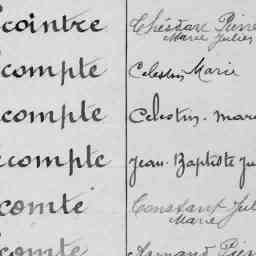 cointre Théodore Pierre
Marie Julien
compte Celestin Marie
compte Celestin. Mari
compte Jean Baptiste Ju
comte Constant Jul
Marie
comte Armand Pier